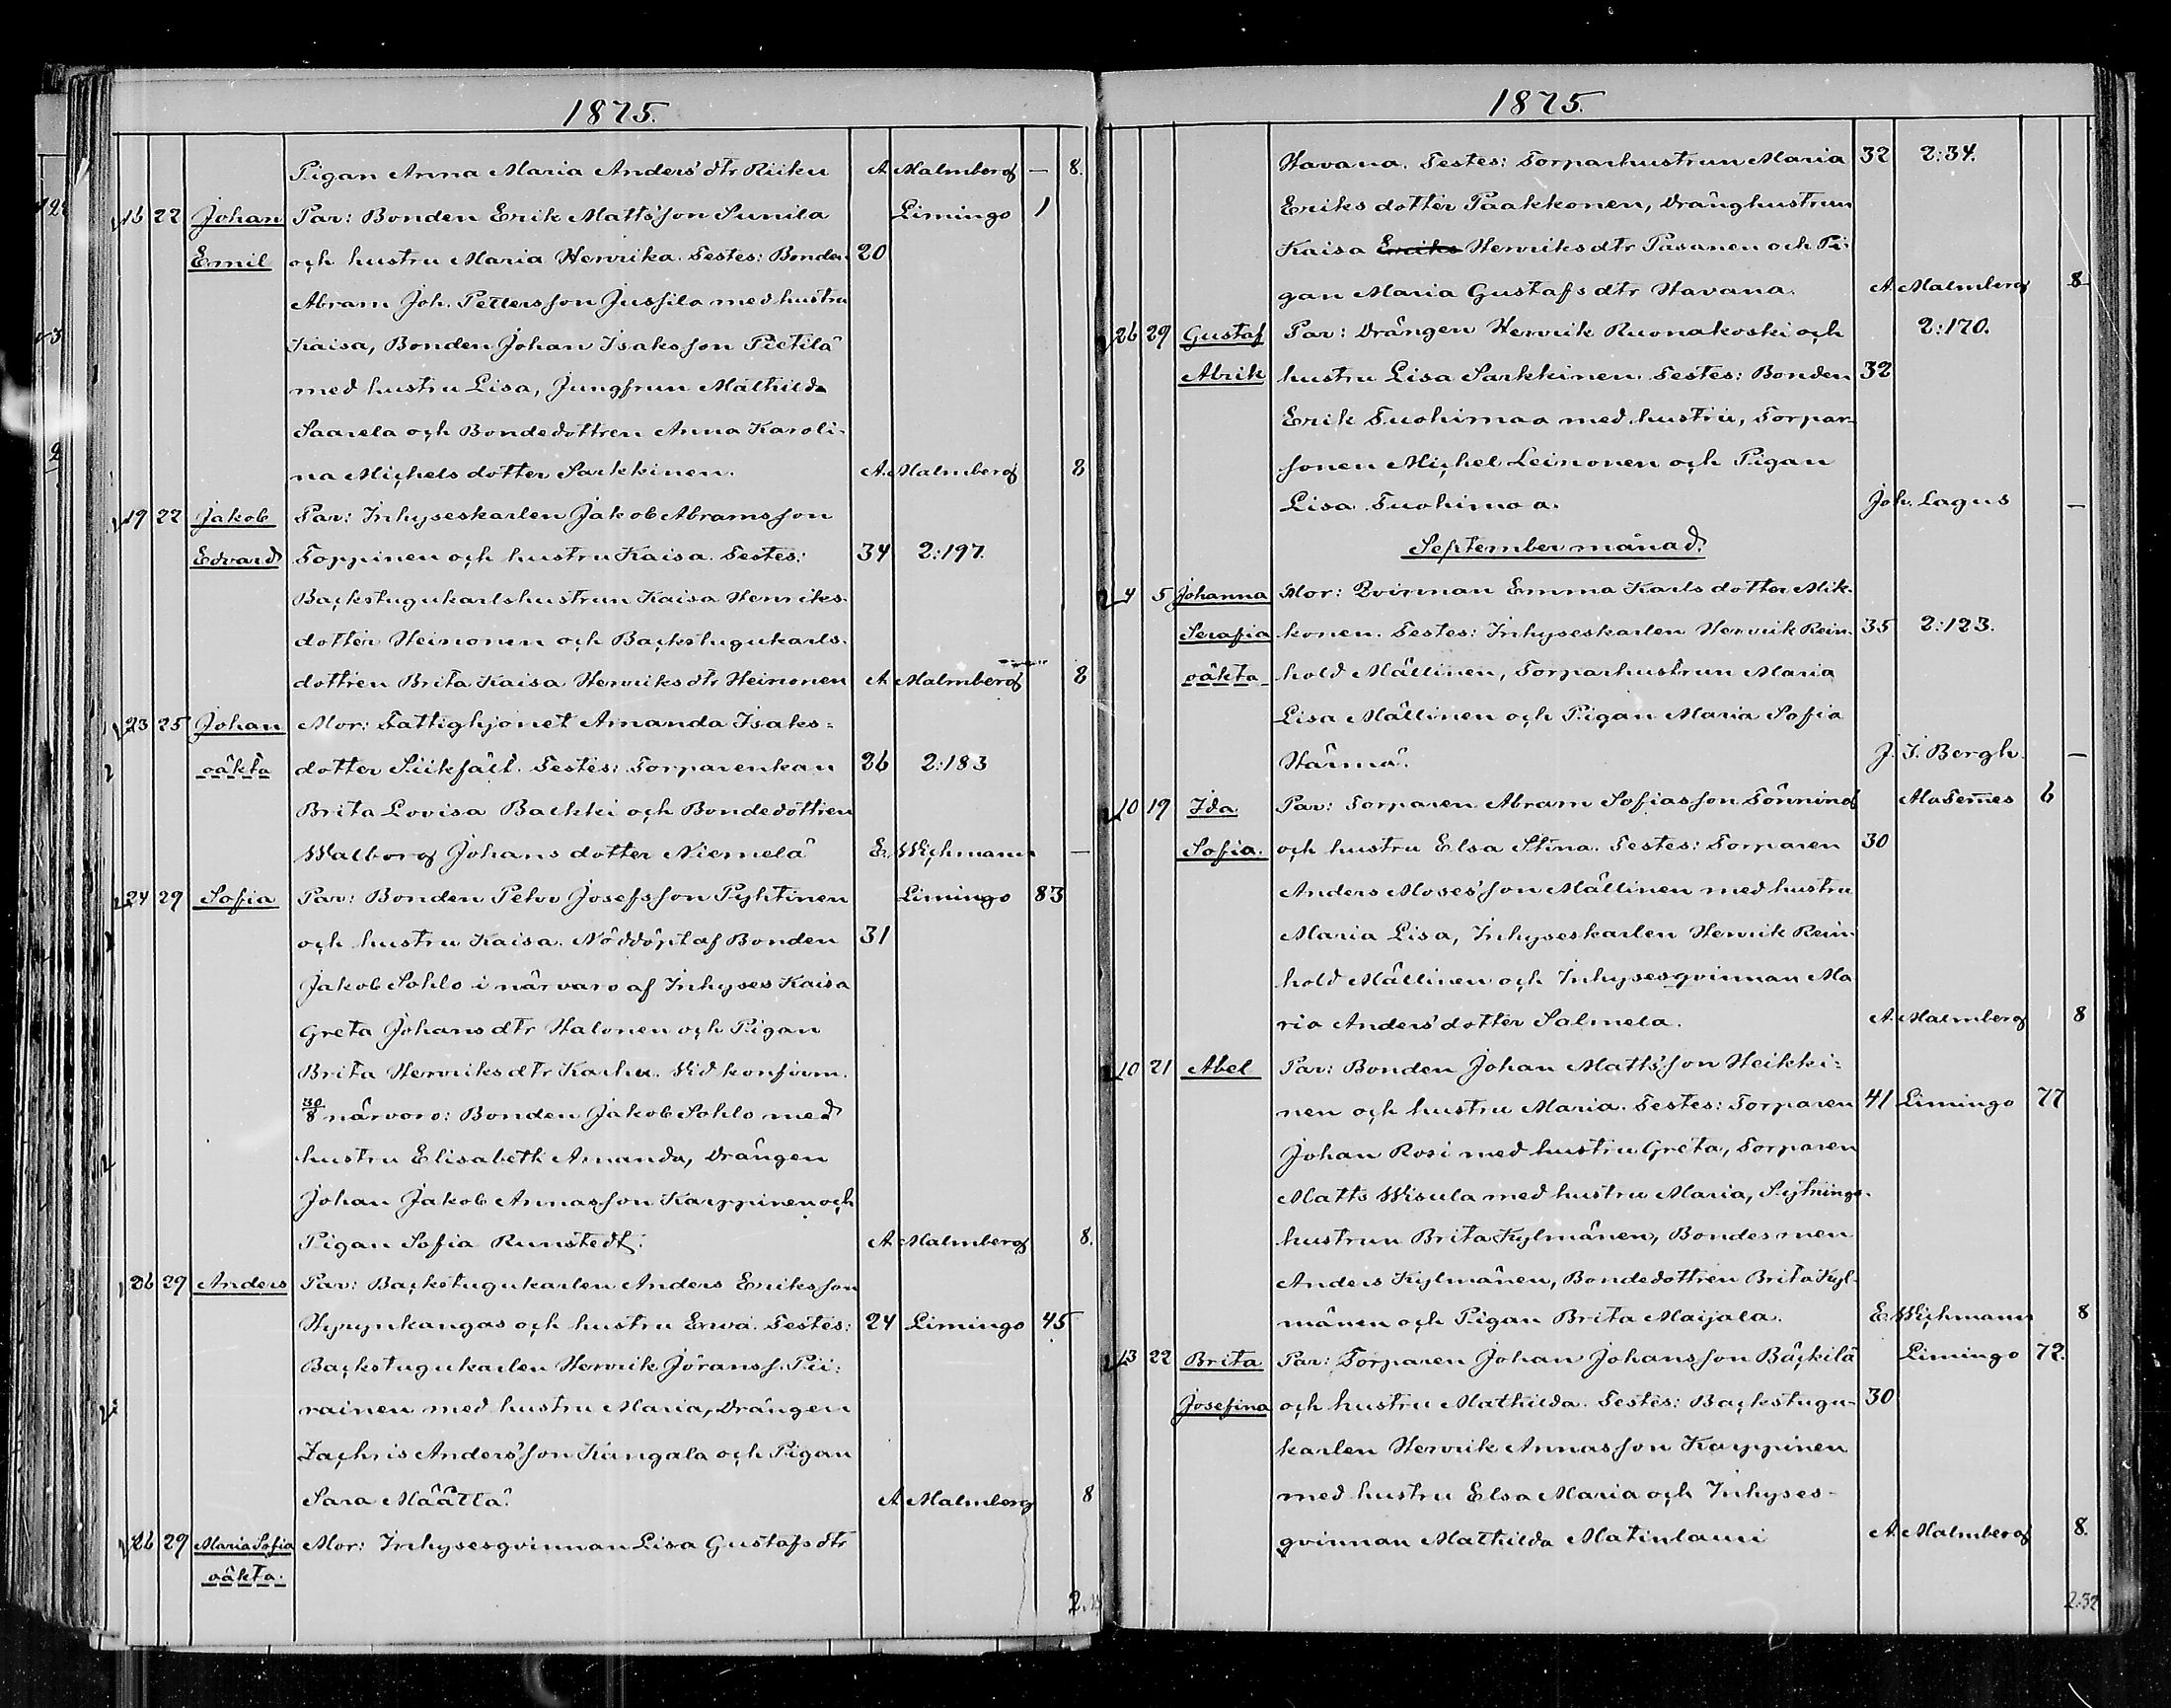 1875.
Pigan Anna Maria Anders'dtr Riiku A. Malmberg — 8.
16 22 Johan Par: Bonden Erik Matts'son Sunila Limingo 1
Emil och hustru Maria Henrika. Testes: Bonden 20
Abram Joh. Pettersson Jussila med hustru
Kaisa, Bonden Johan Isaksson Pietilä
med hustru Lisa, Jungfrun Mathilda
Saarela och Bondedottren Anna Karoli-
na Michels dotter Sarkkinen. A. Malmberg 8
19 22 Jakob Par: Inhyseskarlen Jakob Abramsson
Edvard Toppinen och hustru Kaisa. Testes: 34 2:197.
Backstugukarlshustrun Kaisa Henriks-
dotter Heinonen och Backstugukarls-
dottren Brita Kaisa Henriksdtr Heinonen A. Malmberg 8
23 25 Johan Mor: Fattighjonet Amanda Isaks-
oäkta dotter Siikfält. Testes: Torparenkan 26 2:183
Brita Lovisa Backki och Bondedottren
Walborg Johans dotter Niemelä E. Wichmann —
24 29 Sofia Par: Bonden Petter Josefsson Pyhtinen Limingo 83
och hustru Kaisa. Nöddöpt af Bonden 31
Jakob Sohlo i närvaro af Inhyses Kaisa
Greta Johansdtr Halonen och Pigan
Brita Henriksdtr Karhu. Vid konfirm.
30/8 närvoro: Bonden Jakob Sohlo med
hustru Elisabeth Amanda, Drängen
Johan Jakob Annasson Karppinen och
Pigan Sofia Runstedt. A. Malmberg 8.
26 29 Anders Par: Backstugukarlen Anders Eriksson
Hyrynkangas och hustru Ewa. Testes: 24 Limingo 45
Backstugukarlen Henrik Jöranss. Pii-
rainen med hustru Maria, Drängen
Zachris Anders'son Kangala och Pigan
Sara Määttä. A. Malmberg 8
26 29 Maria Sofia Mor: Inhysesqvinnan Lisa Gustafsdtr
oäkta.
1875.
Havana. Testes: Torparhustrun Maria 32 2:34.
Eriks dotter Paakkonen, Dränghustrun
Kaisa Eriks Henriksdtr Pasanen och Pi-
gan Maria Gustafs dtr Havana. A. Malmberg 8
26 29 Gustaf Par: Drängen Henrik Ruonakoski och 2:170.
Alrik hustru Lisa Sarkkinen. Testes: Bonden 32
Erik Tuohimaa med hustru, Torpar-
sonen Michel Leinonen och Pigan
Lisa Tuohimaa. Joh. Lagus —
September månad.
4 5 Johanna Mor: Qvinnan Emma Karls dotter Mik-
Serafia konen. Testes: Inhyseskarlen Henrik Rein- 35 2:123.
oäkta hold Mällinen, Torparhustrun Maria
Lisa Mällinen och Pigan Maria Sofia
Härmä. J. I. Bergh. —
10 19 Ida Par: Torparen Abram Sofiasson Tönning Alatemmes 6
Sofia. och hustru Elsa Stina. Testes: Torparen 30
Anders Moses'son Mällinen med hustru
Maria Lisa, Inhyseskarlen Henrik Rein-
hold Mällinen och Inhysesqvinnan Ma
ria Anders'dotter Salmela. A. Malmberg 8
10 21 Abel Par: Bonden Johan Matts'son Heikki-
nen och hustru Maria. Testes: Torparen 41 Limingo 77
Johan Rosi med hustru Greta, Torparen
Matts Wisula med hustru Maria, Sytnings-
hustrun Brita Kylmänen, Bondesonen
Anders Kylmänen, Bondedottren Brita Kyl-
mänen och Pigan Brita Maijala. E. Wichmann 8
13 22 Brita Par: Torparen Johan Johansson Bäckilä Limingo 72.
Josefina och hustru Mathilda. Testes: Backstugu- 30
karlen Henrik Annasson Karppinen
med hustru Elsa Maria och Inhyses-
qvinnan Mathilda Matinlauri A. Malmberg 8.
2:32